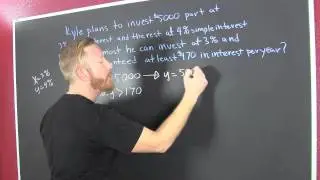 Kyle plans to invest $5000 part at
3% interest and the rest at 4% simple interest
most he can invest at 3% and
guaranteed at least $170 in interest per year?
x=3%
y=4%
5000 → y=5
y>170